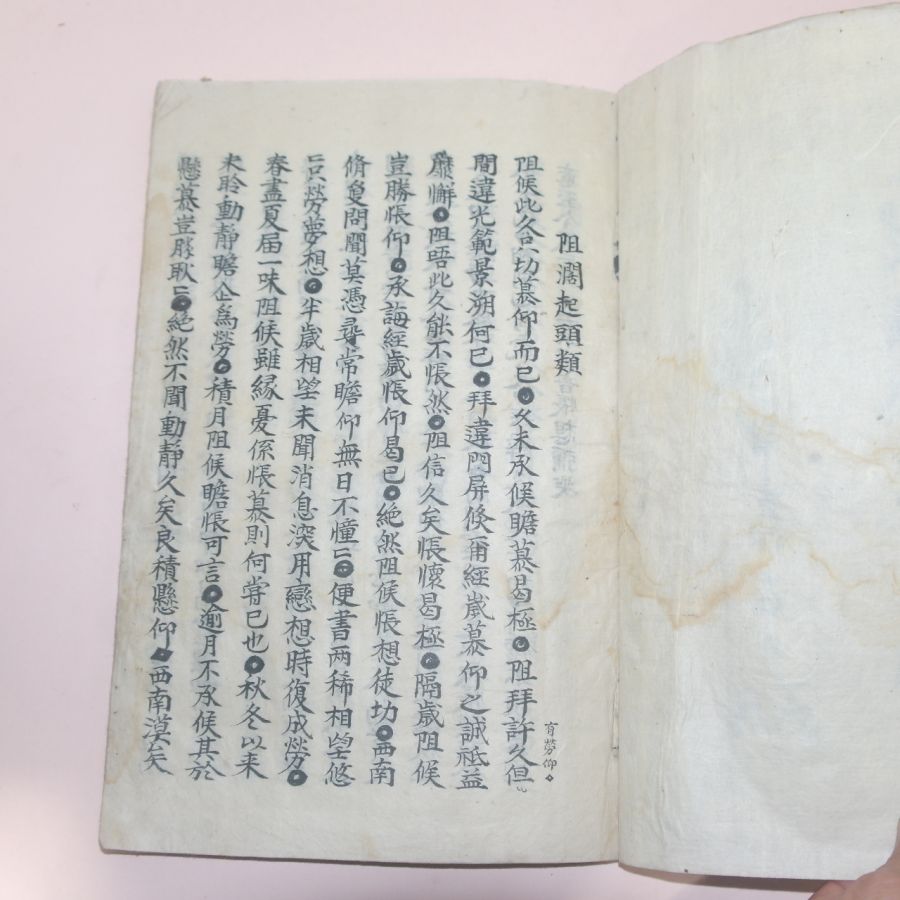 阻濶起頭類
阻候此久只切慕仰而已○久未承候瞻慕曷極○阻拜許久但
育勞仰○
間違光範景溯何已○拜違門屏倐爾經歲慕仰之誠祗益
靡懈○阻晤此久能不悵然○阻信久矣悵懷曷極○隔歲阻候
豈勝悵仰○承誨經歲悵仰曷已○絶然阻候悵想徒切○西南
脩夐問聞莫憑尋常瞻仰無日不憧〻○便書两稀相望悠
〻只勞夢想○半歲相望未聞消息深用戀想時復成勞○
春盡夏届一味阻候雖縁憂係悵慕則何甞已也○秋冬以来
未聆動靜瞻企爲勞○積月阻候瞻悵可言○逾月不承候其於
懸慕豈勝耿〻○絶然不聞動靜久矣良積懸仰○西南漠矣